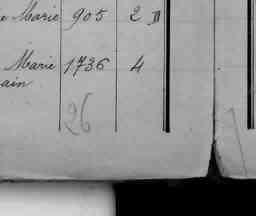 e Marie 905 2 D
Marie 1736 4
ain
26